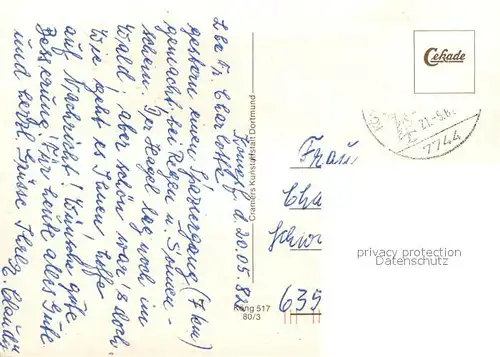 Königsf. d. 20.05.82
Lbe Fr. Charlotte
gestern einen Spaziergang (7 km)
gemacht bei Regen u. Sonnen-
schein. Der Hagel lag noch im
Wald, aber schön war's doch.
Wie geht es Ihnen, hoffe
auf Nachricht! Wünsche gute
Besserung! Für heute alles Gute
und herzl. Grüsse Ihre
Cramers Kunstanstalt Dortmund
Köng 517
80/3
Cekade
21.-5.8
7744
Frau
Cha
Schw
635
privacy protection
Datenschutz